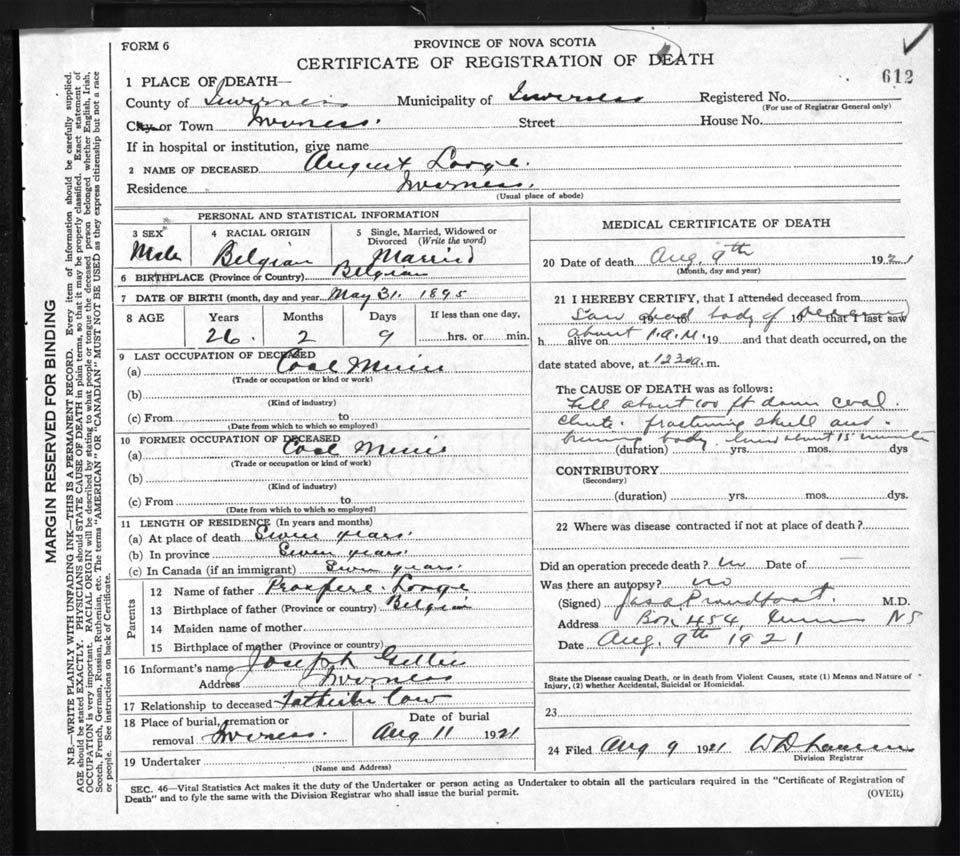 FORM 6
PROVINCE OF NOVA SCOTIA
CERTIFICATE OF REGISTRATION OF DEATH
612
1 PLACE OF DEATH—
County of Inverness Municipality of Inverness Registered No.
(For use of Registrar General only)
City or Town Inverness. Street House No.
If in hospital or institution, give name
2 NAME OF DECEASED August Lorge.
Residence Inverness.
(Usual place of abode)
PERSONAL AND STATISTICAL INFORMATION
3 SEX 4 RACIAL ORIGIN 5 Single, Married, Widowed or Divorced (Write the word)
Male Belgian Married
6 BIRTHPLACE (Province or Country) Belgian
7 DATE OF BIRTH (month, day and year) May 31. 1895
8 AGE Years Months Days If less than one day,
26. 2 9 hrs. or min.
9 LAST OCCUPATION OF DECEASED
(a) Coal Miner
(Trade or occupation or kind or work)
(b)
(Kind of industry)
(c) From to
(Date from which to which so employed)
10 FORMER OCCUPATION OF DECEASED
(a) Coal Miner
(Trade or occupation or kind of work)
(b)
(Kind of industry)
(c) From to
(Date from which to which so employed)
11 LENGTH OF RESIDENCE (In years and months)
(a) At place of death years.
(b) In province years.
(c) In Canada (if an immigrant) years.
Parents
12 Name of father Lorge
13 Birthplace of father (Province or country) Belgian
14 Maiden name of mother
15 Birthplace of mother (Province or country)
16 Informant's name Joseph Gillis
Address Inverness
17 Relationship to deceased Father in law
18 Place of burial, cremation or removal Inverness. Date of burial Aug 11 1921
19 Undertaker
(Name and Address)
MEDICAL CERTIFICATE OF DEATH
20 Date of death Aug. 9th 1921
(Month, day and year)
21 I HEREBY CERTIFY, that I attended deceased from
Saw dead body of deceased 19 19 that I last saw
h alive on about 1. A.M. 19 and that death occurred, on the
date stated above, at 12 30 a. m.
The CAUSE OF DEATH was as follows:
Fell about 100 ft down coal
chute. fracturing skull and
body. about 15 minutes
(duration) yrs. mos. dys
CONTRIBUTORY
(Secondary)
(duration) yrs. mos. dys.
22 Where was disease contracted if not at place of death?
Did an operation precede death? no Date of
Was there an autopsy? no
(Signed) M.D.
Address Box 454, NS
Date Aug. 9th 1921
State the Disease causing Death, or in death from Violent Causes, state (1) Means and Nature of
Injury, (2) whether Accidental, Suicidal or Homicidal.
23
24 Filed Aug 9 1921
Division Registrar
SEC. 46—Vital Statistics Act makes it the duty of the Undertaker or person acting as Undertaker to obtain all the particulars required in the "Certificate of Registration of
Death" and to fyle the same with the Division Registrar who shall issue the burial permit.
(OVER)
MARGIN RESERVED FOR BINDING
N.B.—WRITE PLAINLY WITH UNFADING INK—THIS IS A PERMANENT RECORD. Every item of information should be carefully supplied.
AGE should be stated EXACTLY. PHYSICIANS should STATE CAUSE OF DEATH in plain terms, so that it may be properly classified. Exact statement of
OCCUPATION is very important. RACIAL ORIGIN will be described by stating to what people or tongue the deceased person belonged whether English, Irish,
Scotch, French, German, Russian, Ruthenian, etc. The terms "AMERICAN" OR "CANADIAN" MUST NOT BE USED as they express citizenship but not a race
or people. See instructions on back of Certificate.